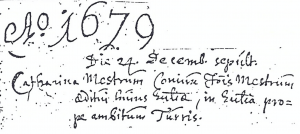 Ao. 1679
Die 24. Decemb. sepult.
Catharina Mestrum Coniux Tois Mestrum
æditui huius Eccliæ, in Ecclia, pro-
pe ambitum Turris.